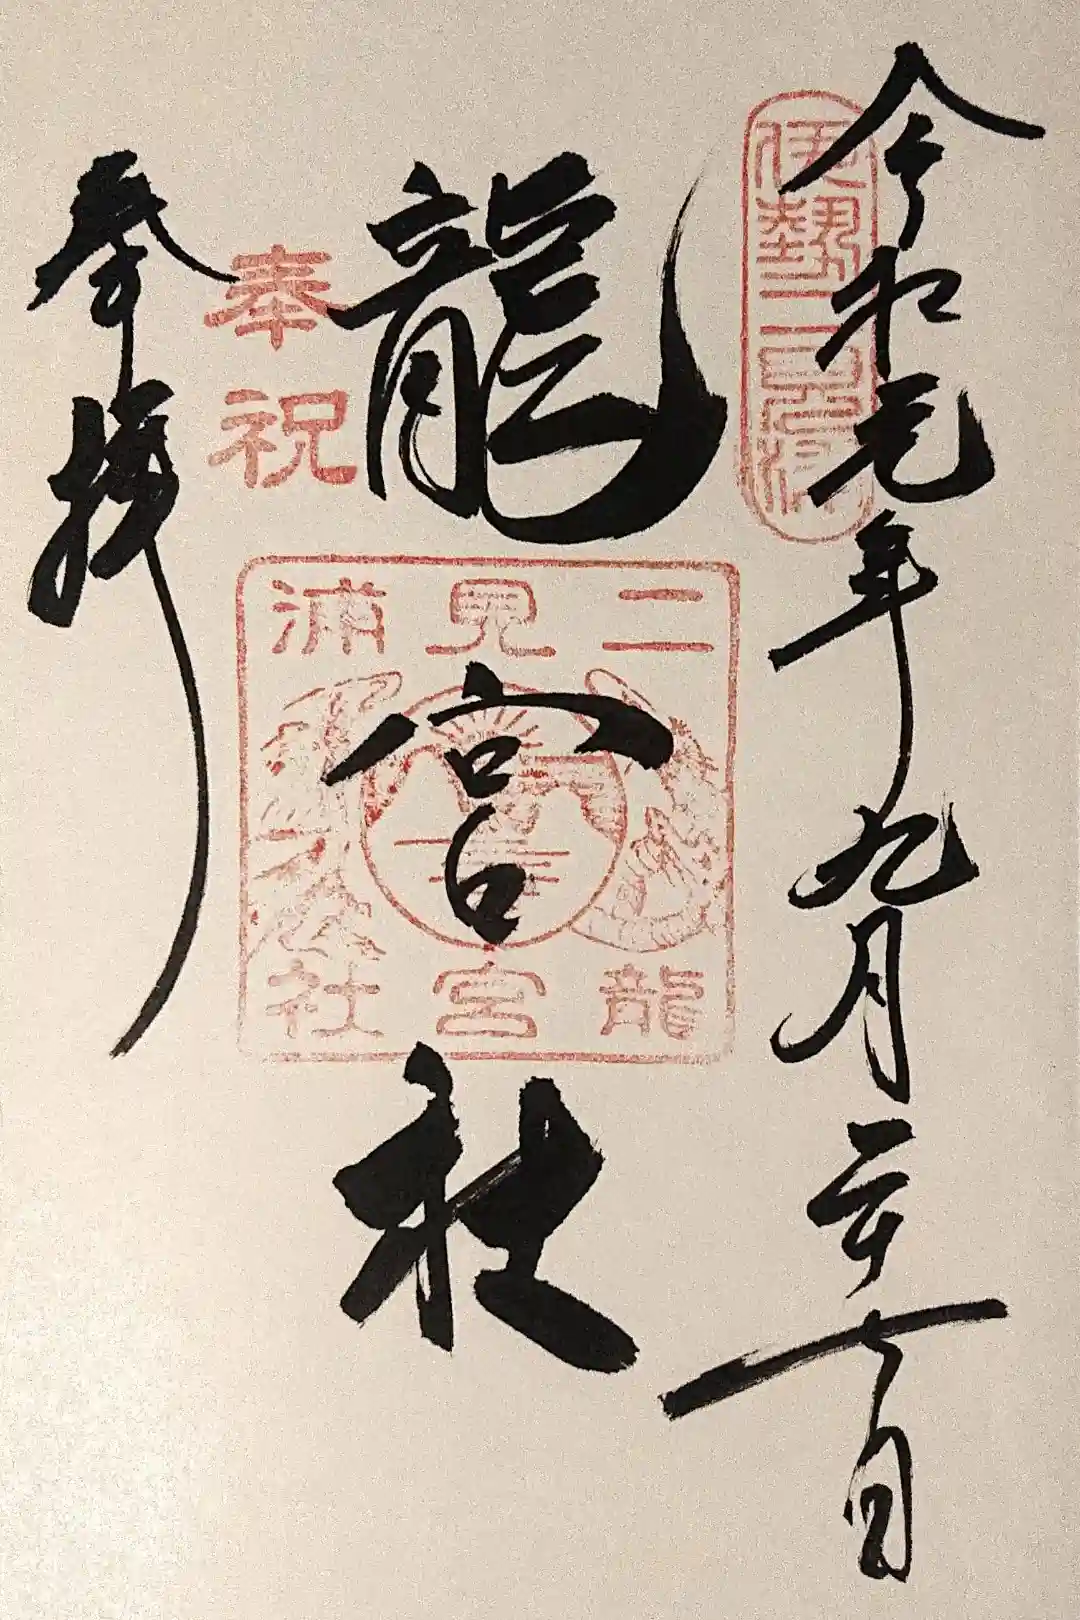 伊勢二見浦
令和元年九月二十一日
龍宮社
奉祝
二見浦
龍宮社
奉拝